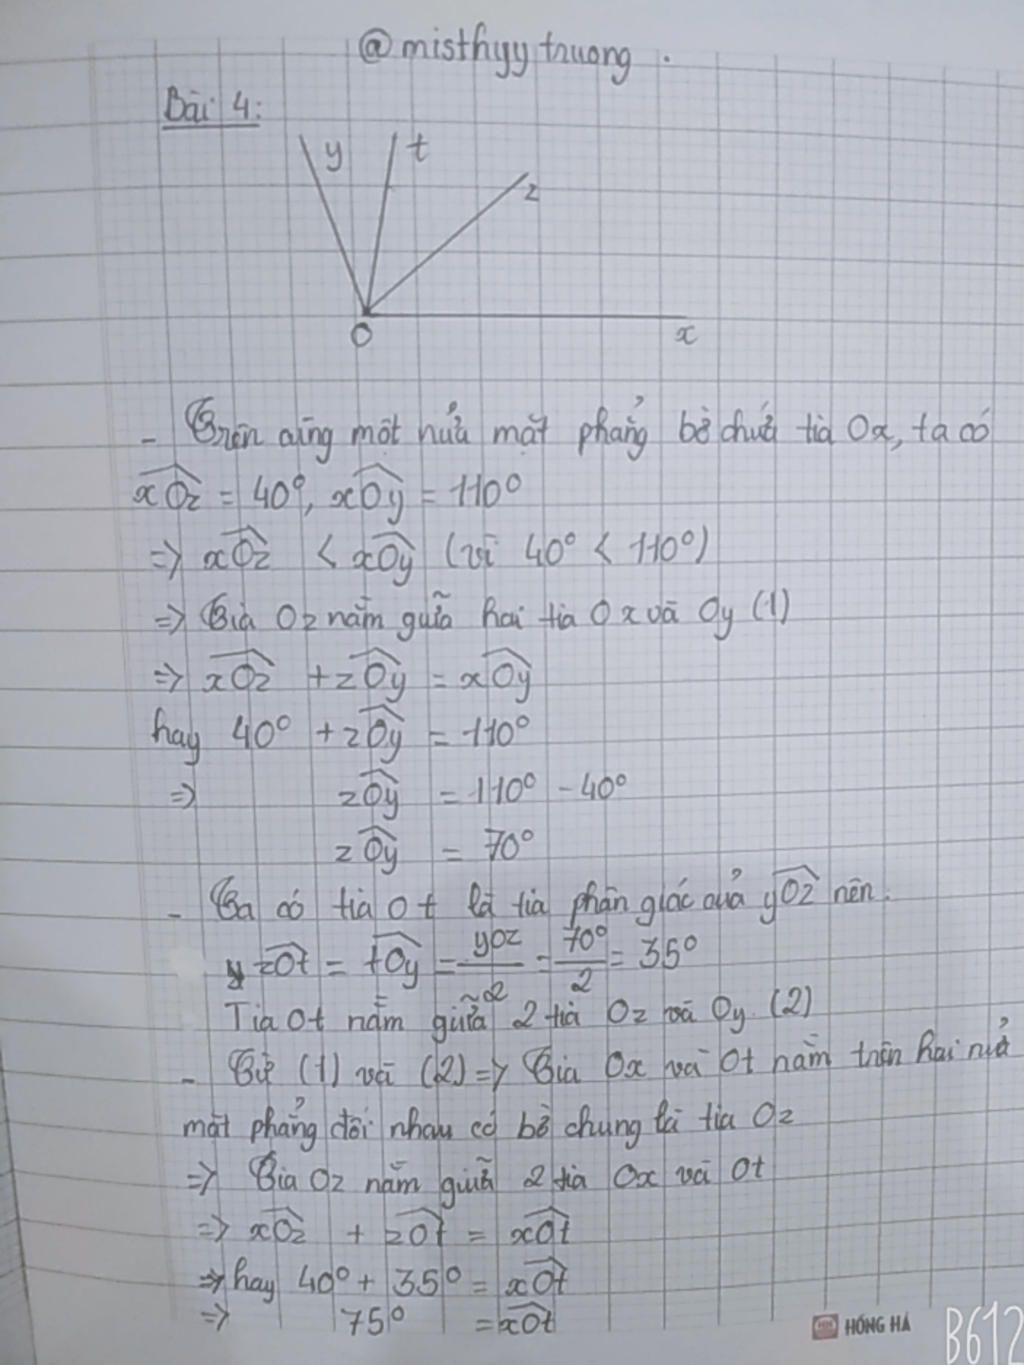 @misthyytruong.
Bài 4:
y t
z
O x
- Trên cùng một nửa mặt phẳng bờ chứa tia Ox, ta có
xOz = 40°, xOy = 110°
=> xOz < xOy (vì 40° < 110°)
=> Tia Oz nằm giữa hai tia Ox và Oy (1)
=> xOz + zOy = xOy
hay 40° + zOy = 110°
=> zOy = 110° - 40°
zOy = 70°
- Ta có tia Ot là tia phân giác của yOz nên:
zOt = tOy = yOz/2 = 70°/2 = 35°
Tia Ot nằm giữa 2 tia Oz và Oy (2)
- Từ (1) và (2) => Tia Ox và Ot nằm trên hai nửa
mặt phẳng đối nhau có bờ chung là tia Oz
=> Tia Oz nằm giữa 2 tia Ox và Ot
=> xOz + zOt = xOt
=> hay 40° + 35° = xOt
=> 75° = xOt
HỒNG HÀ
B612